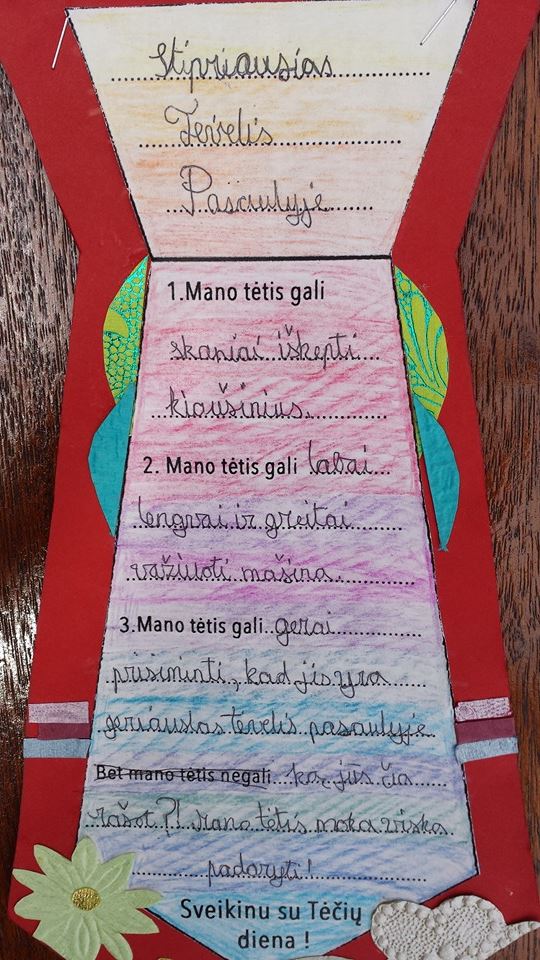 Stipriausias
Tėvelis
Pasaulyje
1.Mano tėtis gali
skaniai iškepti
kiaušinius.
2. Mano tėtis gali labai
lengvai ir greitai
važiuoti mašina.
3.Mano tėtis gali gerai
prisiminti, kad jis yra
geriausias tėvelis pasaulyje
Bet mano tėtis negali ką jūs čia
rašot?! Mano tėtis moka viską
padaryti!
Sveikinu su Tėčių
diena !